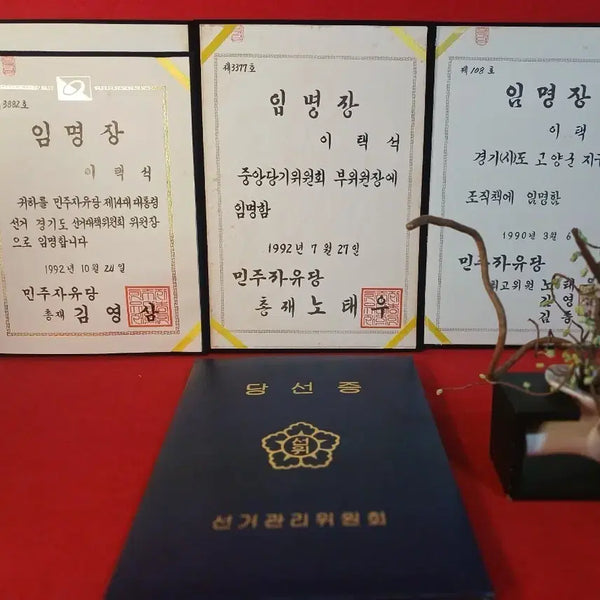 3892호
임명장
이 택 석
귀하를 민주자유당 제14대 대통령
선거 경기도 선거대책위원회 위원장
으로 임명합니다
1992년 10월 28일
민주자유당
총재 김영삼
제3377호
임명장
이 택 석
중앙당기위원회 부위원장에
임명함
1992년 7월 27일
민주자유당
총재 노태우
제108호
임명장
이 택
경기(시)도 고양군 지구
조직책에 임명함
1990년 3월 6
민주자유당
최고위원 노태우
김영
김종
당선증
선관위
선거관리위원회